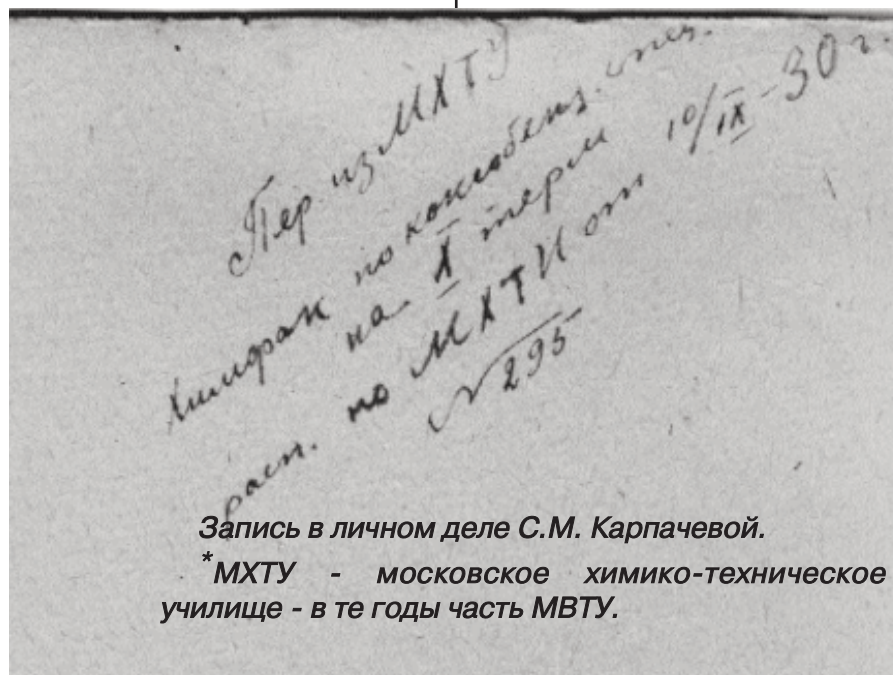 Пер. из МХТУ
Химфак по коксобенз. спец.
на X терм
расп. по МХТИ от 10/IX-30 г.
№ 295
Запись в личном деле С.М. Карпачевой.
*МХТУ - московское химико-техническое
училище - в те годы часть МВТУ.